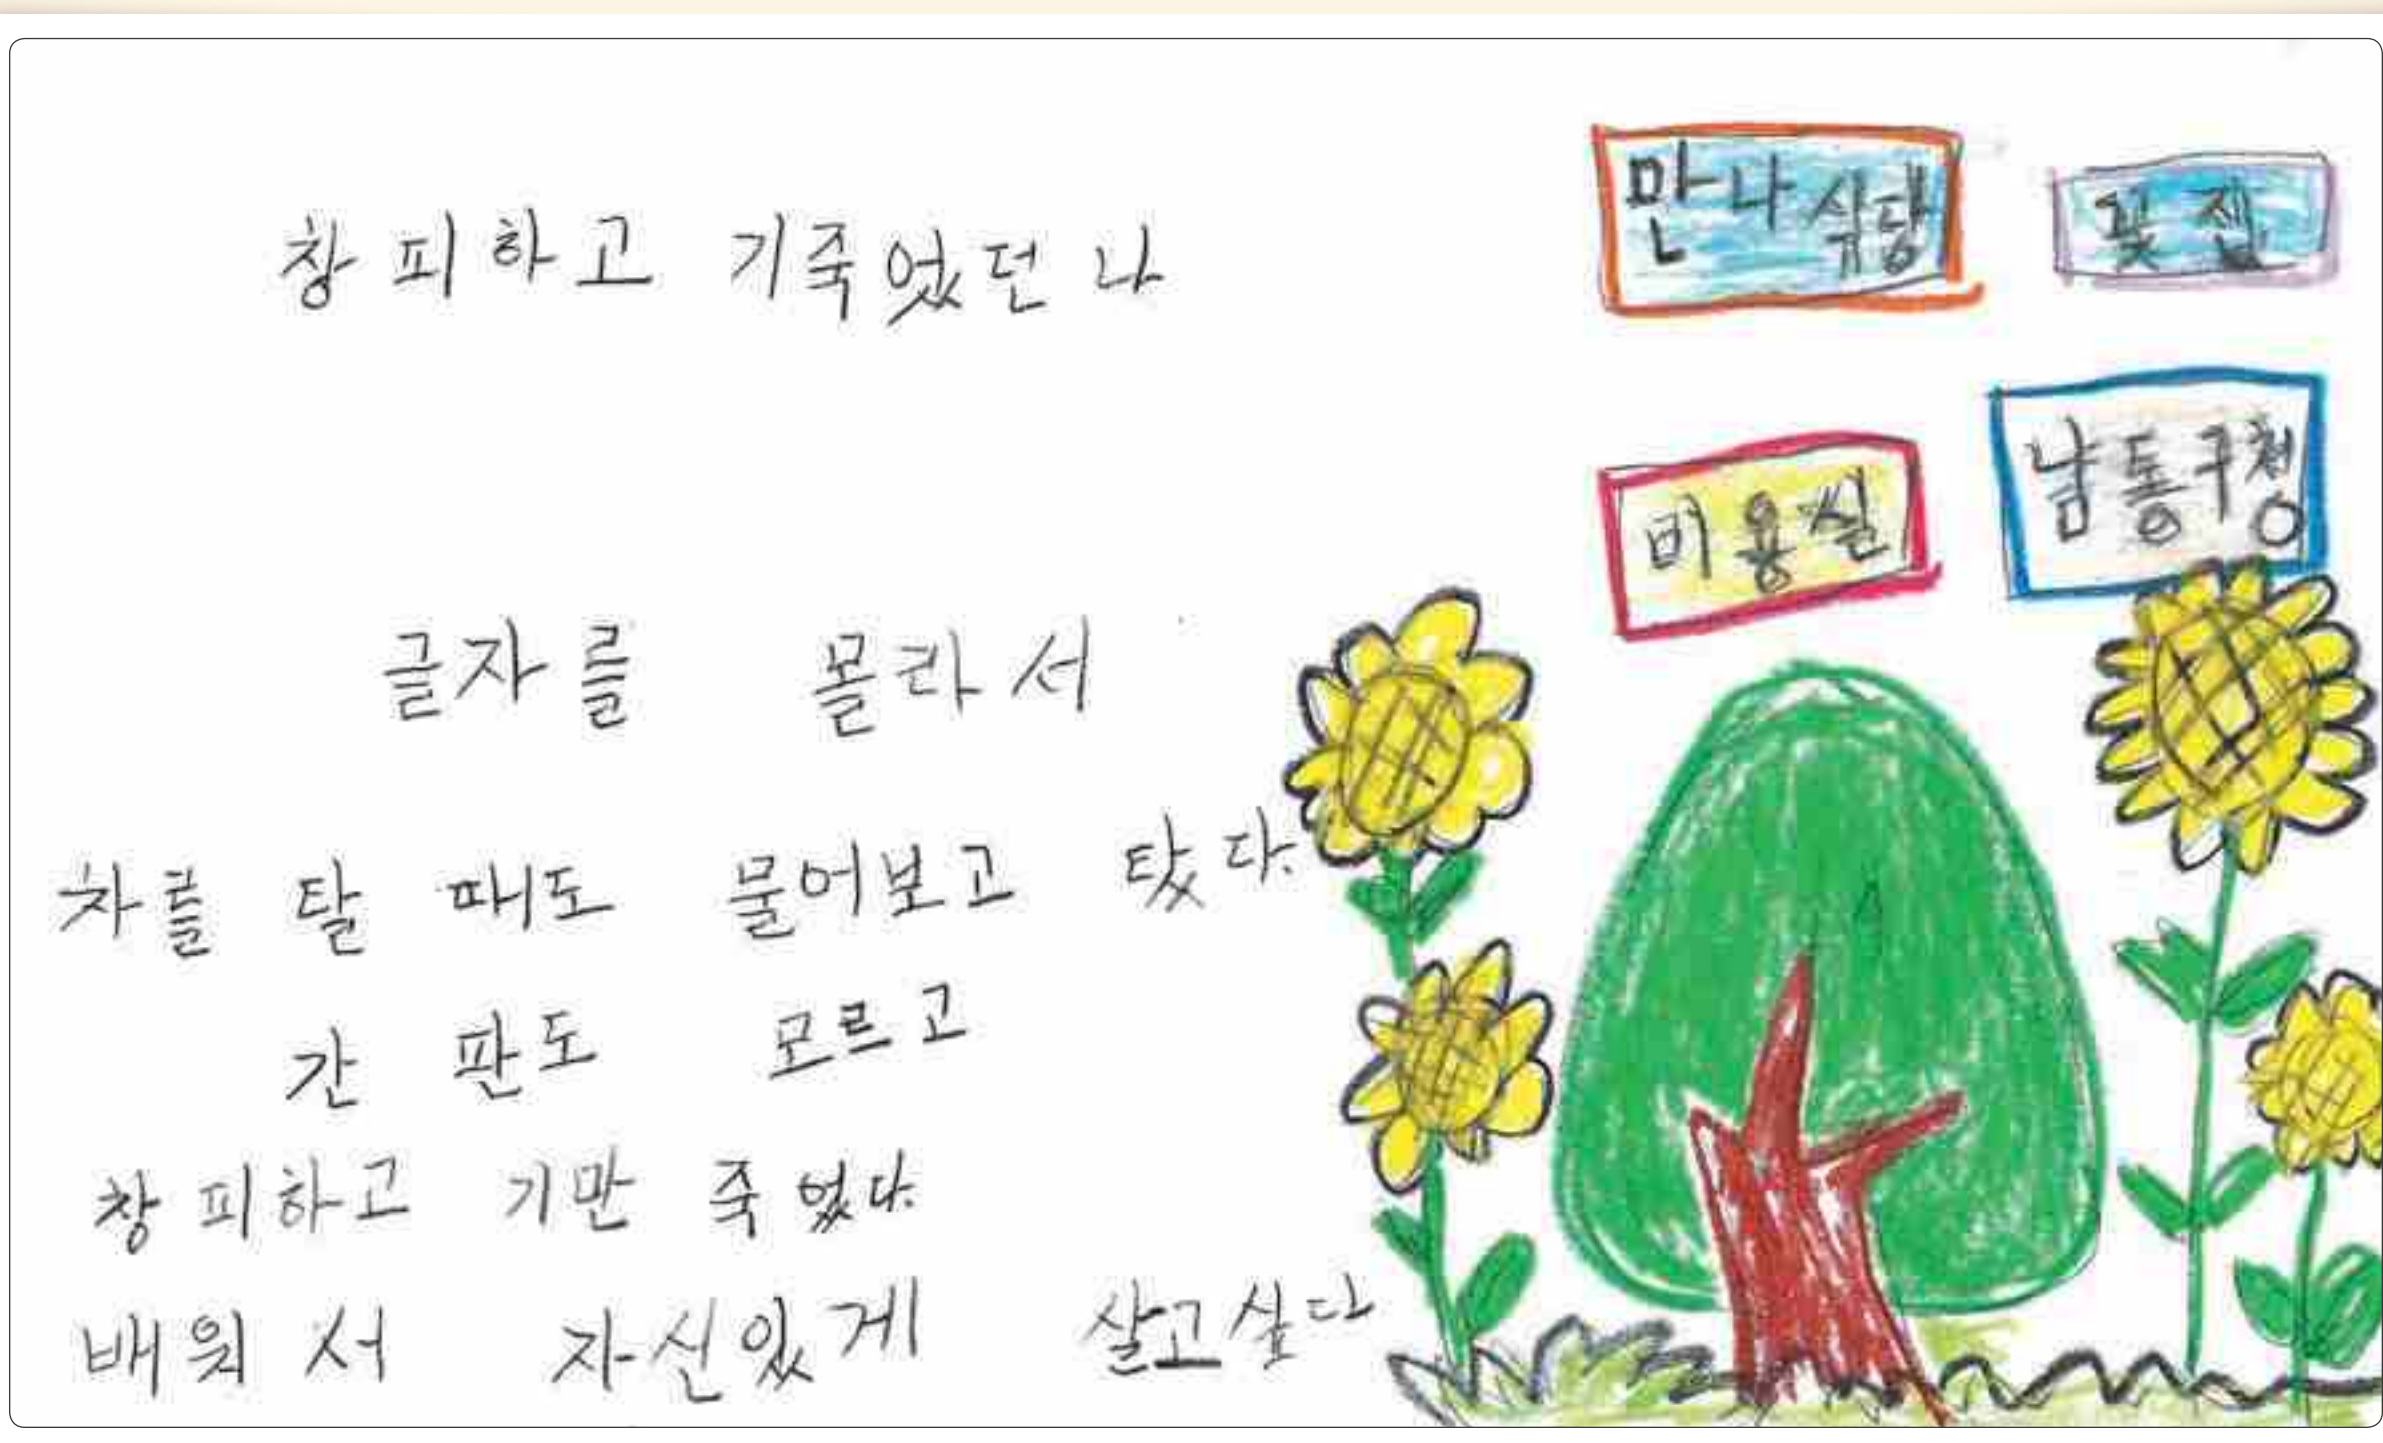 창피하고 기죽었던 나
글자를 몰라서
차를 탈 때도 물어보고 탔다.
간판도 모르고
창피하고 기만 죽었다.
배워서 자신있게 살고싶다
만나식당
꽃집
미용실
남동구청